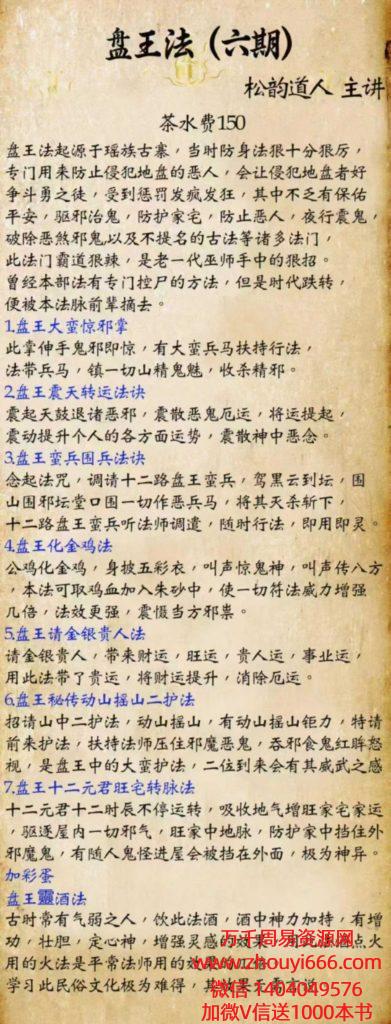 盘王法（六期）
松韵道人 主讲
茶水费150
盘王法起源于瑶族古寨，当时防身法狠十分狠厉，
专门用来防止侵犯地盘的恶人，会让侵犯地盘者好
争斗勇之徒，受到惩罚发疯发狂，其中不乏有保佑
平安，驱邪治鬼，防护家宅，防止恶人，夜行震鬼，
破除恶煞邪鬼,以及不提名的古法等诸多法门，
此法门霸道狠辣，是老一代巫师手中的狠招。
曾经本部法有专门控尸的方法，但是时代跌转，
便被本法脉前辈摘去。
1.盘王大蛮惊邪掌
此掌伸手鬼邪即惊，有大蛮兵马扶持行法，
法带兵马，镇一切山精鬼魅，收杀精邪。
2.盘王震天转运法诀
震起天鼓退诸恶邪，震散恶鬼厄运，将运提起，
震动提升个人的各方面运势，震散神中恶念。
3.盘王蛮兵围兵法诀
念起法咒，调请十二路盘王蛮兵，驾黑云到坛，围
山围邪坛堂口围一切作恶兵马，将其灭杀斩下，
十二路盘王蛮兵听法师调遣，随时行法，即用即灵。
4.盘王化金鸡法
公鸡化金鸡，身披五彩衣，叫声惊鬼神，叫声传八方
，本法可取鸡血加入朱砂中，使一切符法威力增强
几倍，法效更强，震慑当方邪祟。
5.盘王请金银贵人法
请金银贵人，带来财运，旺运，贵人运，事业运，
用此法带了贵运，将财运提升，消除厄运。
6.盘王秘传动山摇山二护法
招请山中二护法，动山摇山，有动山摇山钜力，特请
前来护法，扶持法师压住邪魔恶鬼，吞邪食鬼红眸怒
视，是盘王中的大蛮护法，二位到来会有其威武之感
7.盘王十二元君旺宅转脉法
十二元君十二时辰不停运转，吸收地气增旺家宅家运
，驱逐屋内一切邪气，旺家中地脉，防护家中挡住外
邪魔鬼，有随人鬼怪进屋会被挡在外面，极为神异。
加彩蛋
盘王靈酒法
古时常有气弱之人，饮此法酒，酒中神力加持，有增
功，壮胆，定心神，增强灵感的效果，用此法酒点火
用的火法是平常法师用的效果的几倍
学习此民俗文化极为难得，其效果无需言说
万千周易资源网
www.zhouyi666.com
微信 1404049576
加微V信送1000本书